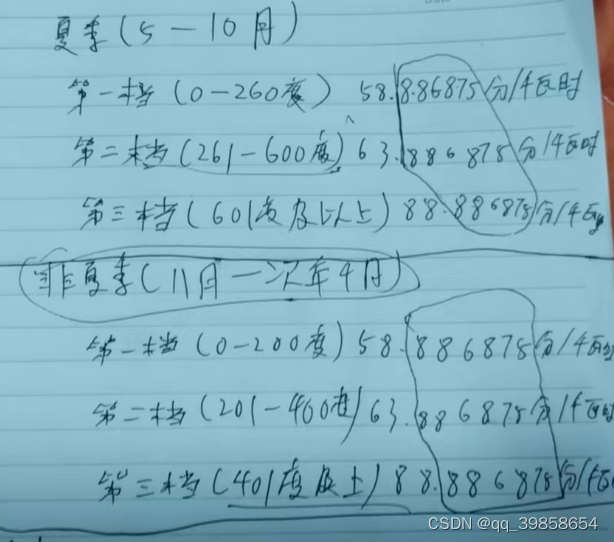 夏季(5—10月)
第一档(0—260度) 58.8.86875分/千瓦时
第二档(261—600度) 63.886875分/千瓦时
第三档(601度及以上) 88.886875分/千瓦
非夏季(11月—次年4月)
第一档(0—200度) 58.886875分/千瓦时
第二档(201—400度) 63.886875分/千瓦时
第三档(401度及上) 88.886875分/千瓦
CSDN @qq_39858654